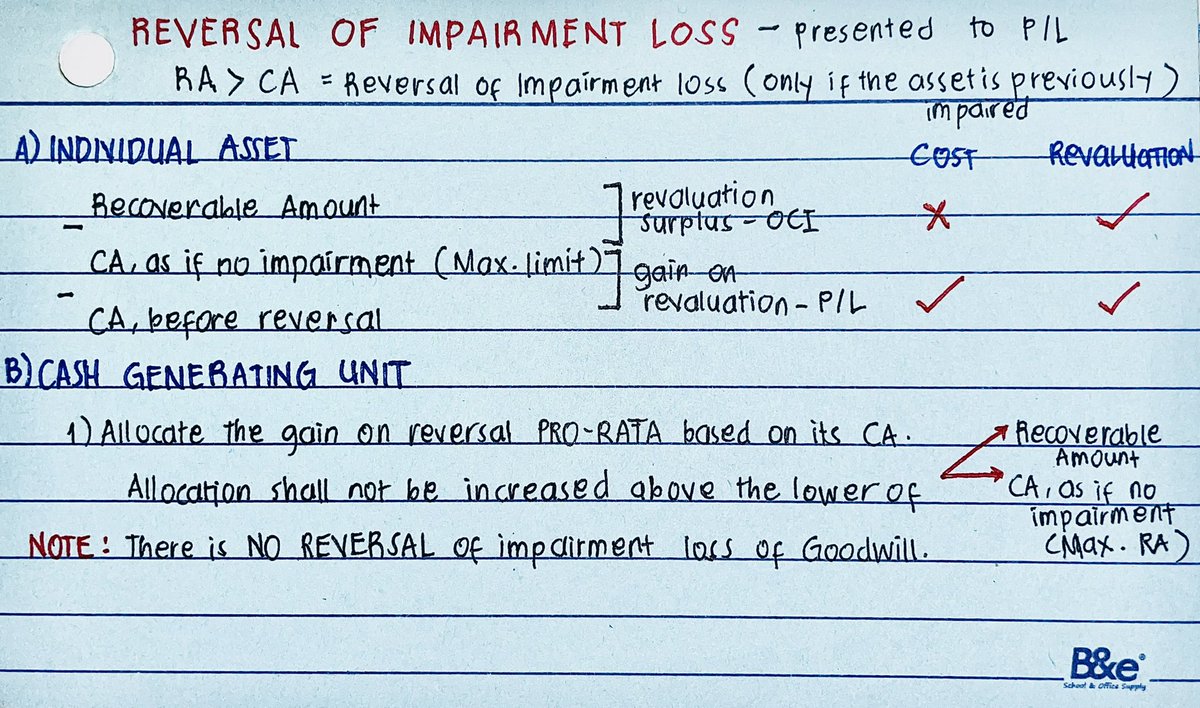 REVERSAL OF IMPAIRMENT LOSS – presented to P/L
RA > CA = Reversal of Impairment loss (only if the asset is previously)
impaired
A) INDIVIDUAL ASSET COST REVALUATION
Recoverable Amount
revaluation
surplus – OCI X ✓
–
CA, as if no impairment (Max. limit)
gain on
revaluation – P/L ✓ ✓
–
CA, before reversal
B) CASH GENERATING UNIT
1) Allocate the gain on reversal PRO-RATA based on its CA.
Allocation shall not be increased above the lower of
Recoverable
Amount
CA, as if no
impairment
(Max. RA)
NOTE: There is NO REVERSAL of impairment loss of Goodwill.
B&e®
School & Office Supply